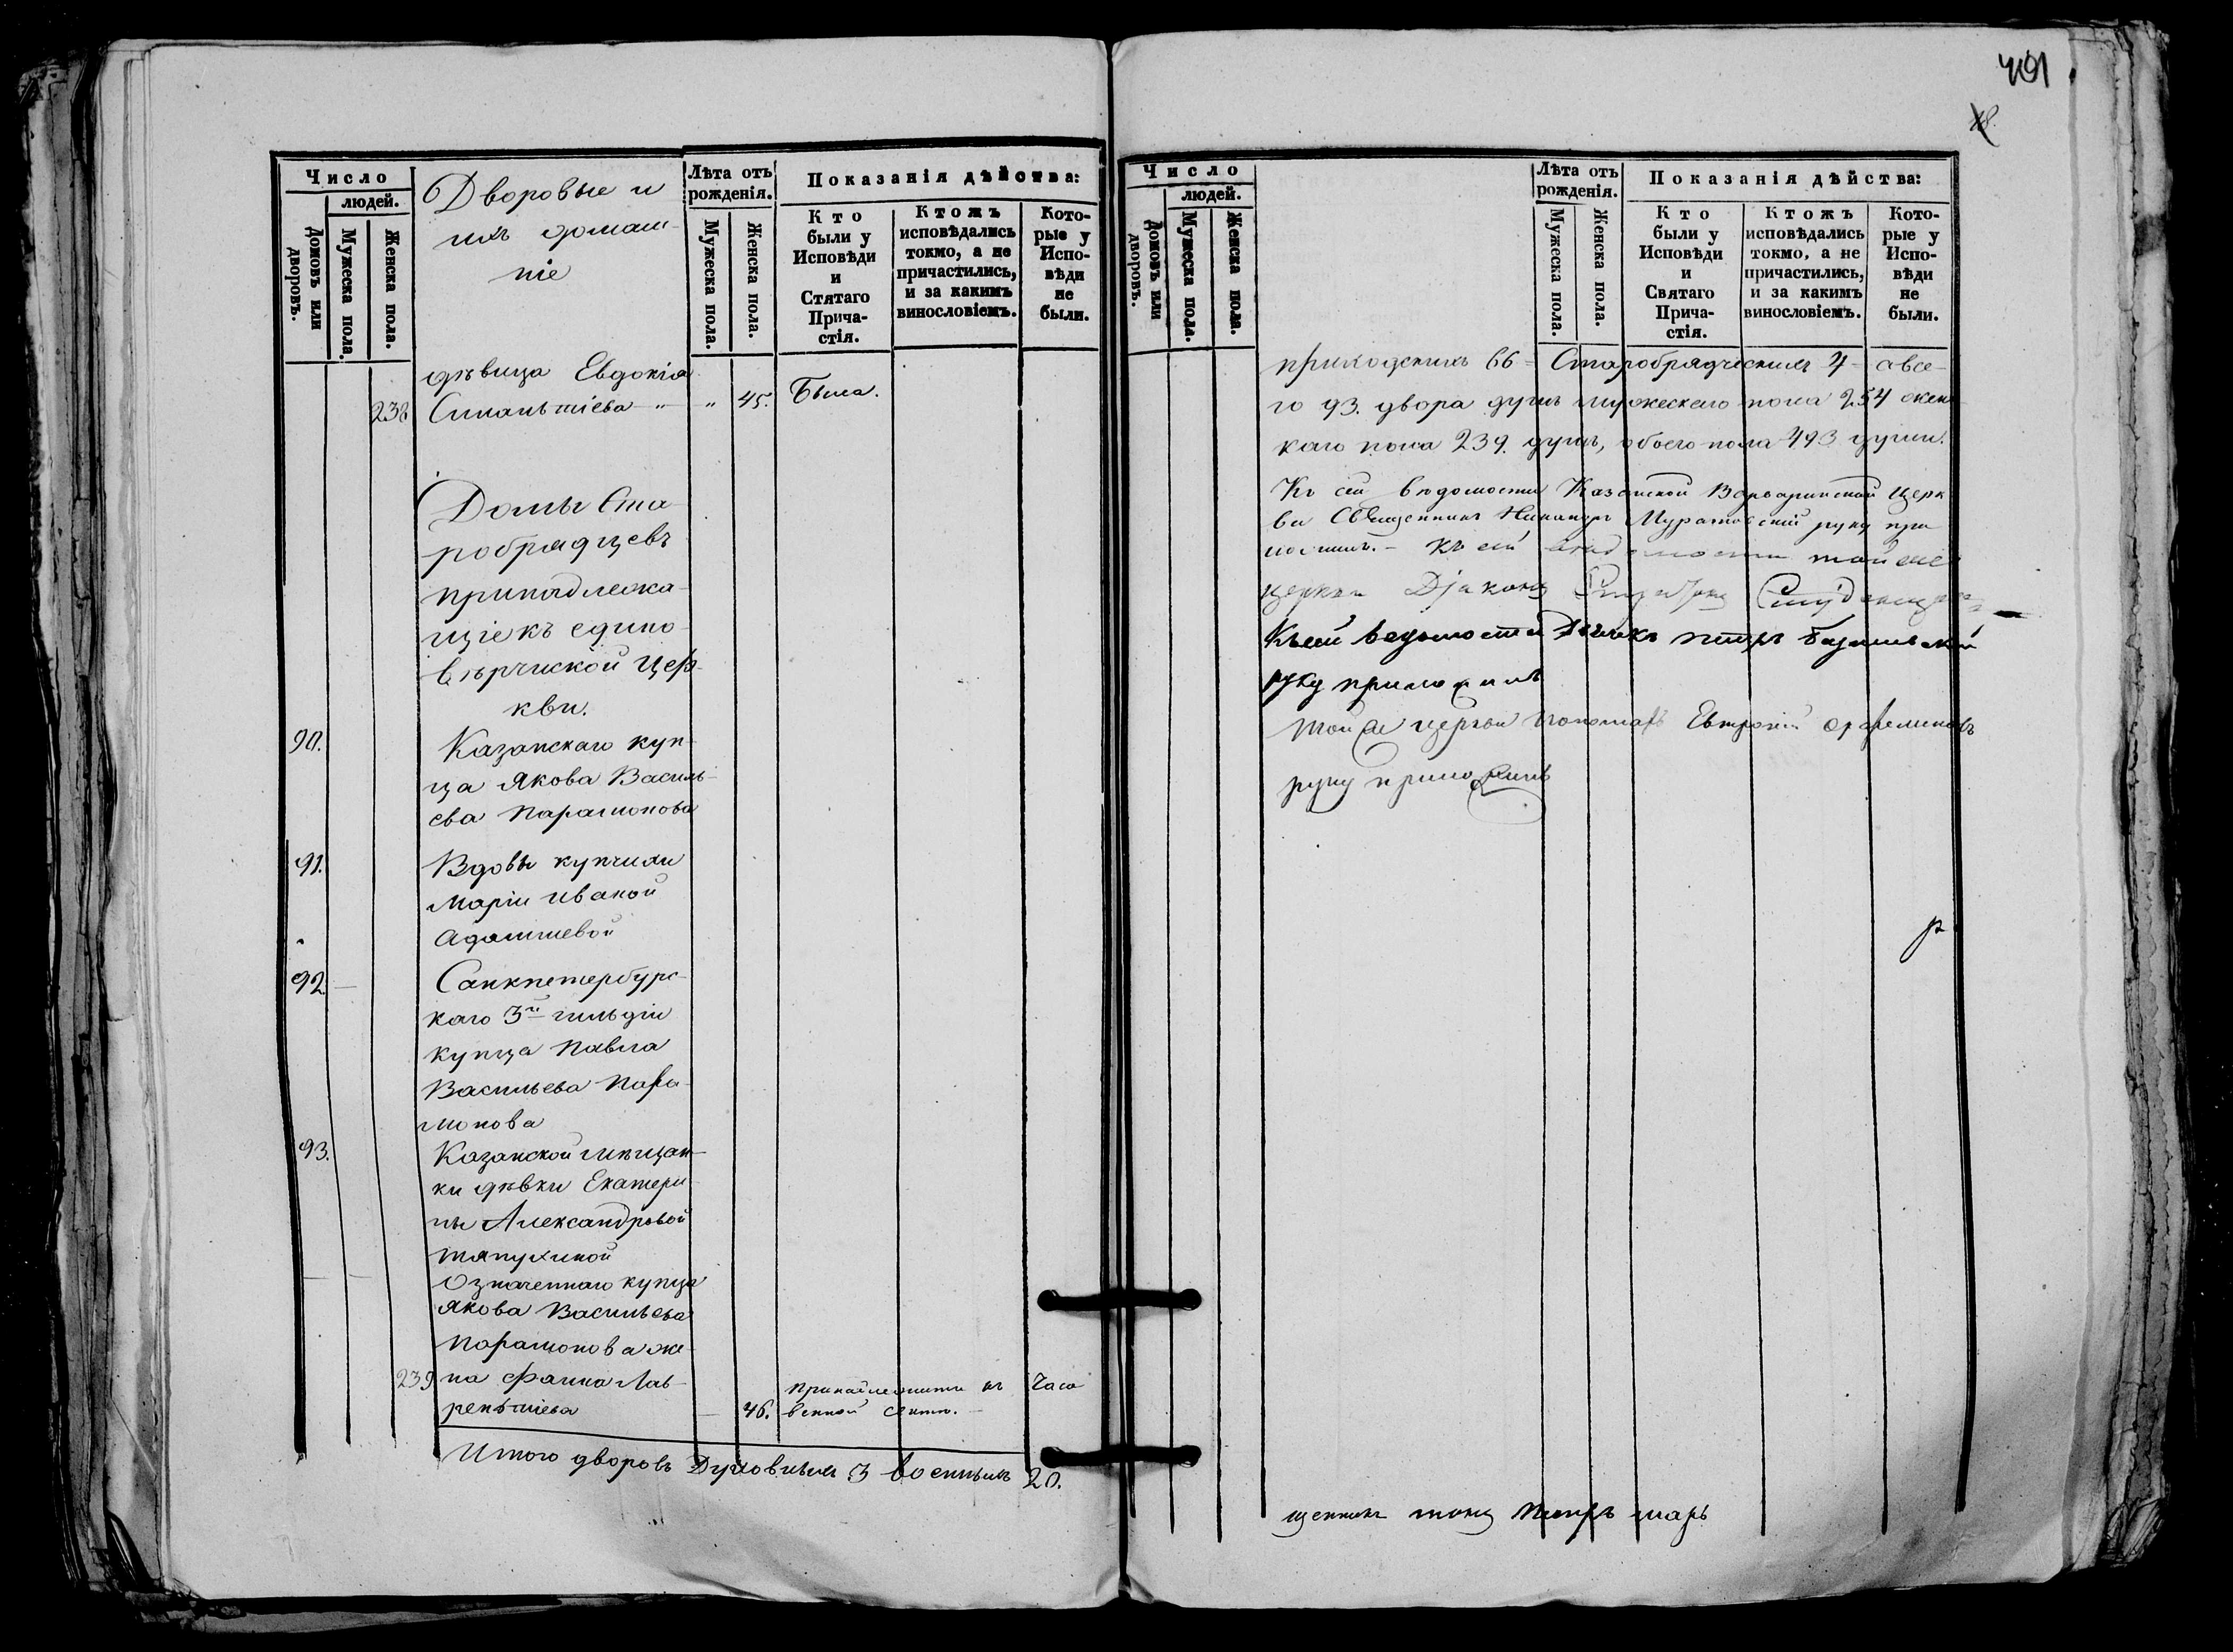 Число
людей.
Домовъ или дворовъ.
Мужеска пола.
Женска пола.
Дворовые и
ихъ домаш-
ніе
Лѣта отъ
рожденія.
Мужеска пола.
Женска пола.
Показанія дѣйства:
Кто
были у
Исповѣди
и
Стятаго
Прича-
стія.
Ктожъ
исповѣдались
токмо, а не
причастились,
и за какимъ
винословіемъ.
Кото-
рые у
Испо-
вѣди
не
были.
дѣвица Евдокія
238 " " 45. Была.
Домы Ста-
робрядцевъ
принадлежа-
щіе къ едино-
вѣрческой Цер-
кви.
90. Казанскаго куп-
ца Якова Василь-
ева Парамонова
91. Вдовы купчихи
Маріи Иваной
92 Санкпетербург-
каго 3й гильдіи
купца Павла
Васильева Пара-
монова
93. Казанской мѣщан-
ки дѣвки Екатери-
ны Александровой
Тяпухиной
Означеннаго купца
Якова Васильева
Парамонова же-
239 на Фаина Лав-
рентіева 46. принадлежитъ къ Часо
венной сектѣ.
Итого дворовъ Духовныхъ 3 военныхъ 20.
491
18.
Число
людей.
Домовъ или дворовъ.
Мужеска пола.
Женска пола.
Лѣта отъ
рожденія.
Мужеска пола.
Женска пола.
Показанія дѣйства:
Кто
были у
Исповѣди
и
Святаго
Прича-
стія.
Ктожъ
исповѣдались
токмо, а не
причастились,
и за какимъ
винословіемъ.
Кото-
рые у
Испо-
вѣди
не
были.
приходскихъ 66 - Старобрядческихъ 4 - авсе-
го 93. двора душъ мужескаго пола 254 женс
каго пола 239. душъ, обоего пола 493 души.
Къ сей вѣдомости Казанской Варваринской церк
ви Священникъ Никаноръ Муратовскій руку при
ложилъ. - Къ сей вѣдомости той же
церкви Діаконъ
Къ сей ведомости Дьячекъ петръ
руку приложилъ
Той же церкви пономарь
руку приложилъ